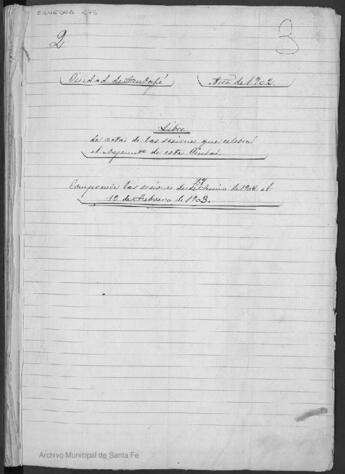 2
3
Ciudad de Santafé Año de 1902.
Libro
de actas de las sesiones que celebra
el Ayuntᵒ de esta Ciudad.
Comprende las sesiones de de 190 al
10 de Febrero de 1903.
Archivo Municipal de Santa Fe